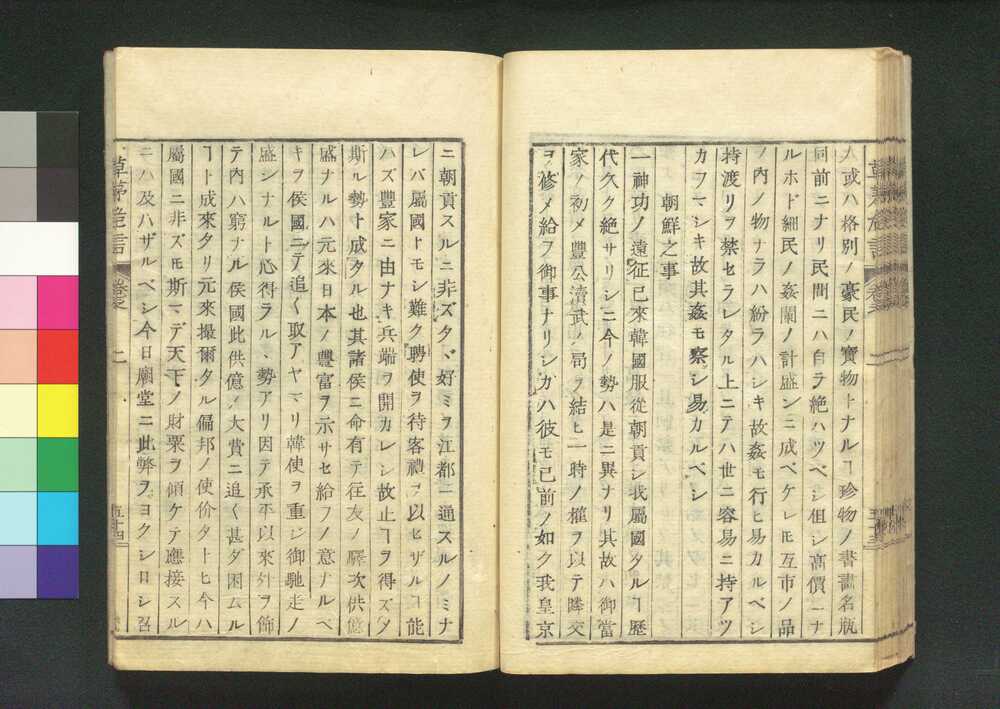 人或ハ格別ノ豪民ノ寶物トナルヿ珍物ノ書畫名瓶
同前ニナリ民間ニハ自ラ絶ハツベシ但シ高價ニナ
ルホド細民ノ姦闌ノ計盛ンニ成ベケレ𪜈互市ノ品
ノ内ノ物ナラハ紛ラハシキ故姦モ行ヒ易カルベシ
持渡リヲ禁セラレタル上ニテハ世ニ容易ニ持アツ
カフマシキ故其姦モ察シ易カルベシ
朝鮮之事
一神功ノ遠征已來韓國服從朝貢シ我屬國タルヿ歷
代久ク絶サリシニ今ノ勢ハ是ニ異ナリ其故ハ御當
家ノ初メ豐公瀆武ノ局ヲ結ヒ一時ノ權ヲ以テ隣交
ヲ修メ給フ御事ナリシガハ彼モ已前ノ如ク我皇京
ニ朝貢スルニ非ズタヾ好ミヲ江都ニ通スルノミナ
レバ屬國トモシ難ク聘使ヲ待客禮ヲ以ヒザルヿ能
ハズ豐家ニ由ナキ兵端ヲ開カレシ故止ヿヲ得ズタ
斯ル勢ト成タル也其諸侯ニ命有テ往友ノ驛次供億
盛ナルハ元來日本ノ豐富ヲ示サセ給フノ意ナルベ
キヲ侯國ニテ追〱取アヤマリ韓使ヲ重ジ御馳走ノ
盛シナルト心得ラル丶勢アリ因テ承平以來外ヲ飾
テ内ハ窮ナル侯國此供億ノ大費ニ追〱甚ダ困ムル
ヿト成來タリ元來撮爾タル偏邦ノ使价タトヒ今ハ
屬國ニ非ズ𪜈斯マデ天下ノ財粟ヲ傾ケテ應接スル
ニハ及ハザルベシ今日廟堂ニ此弊ヲヨクシロシ召
草茅危言
卷之
二
五十四